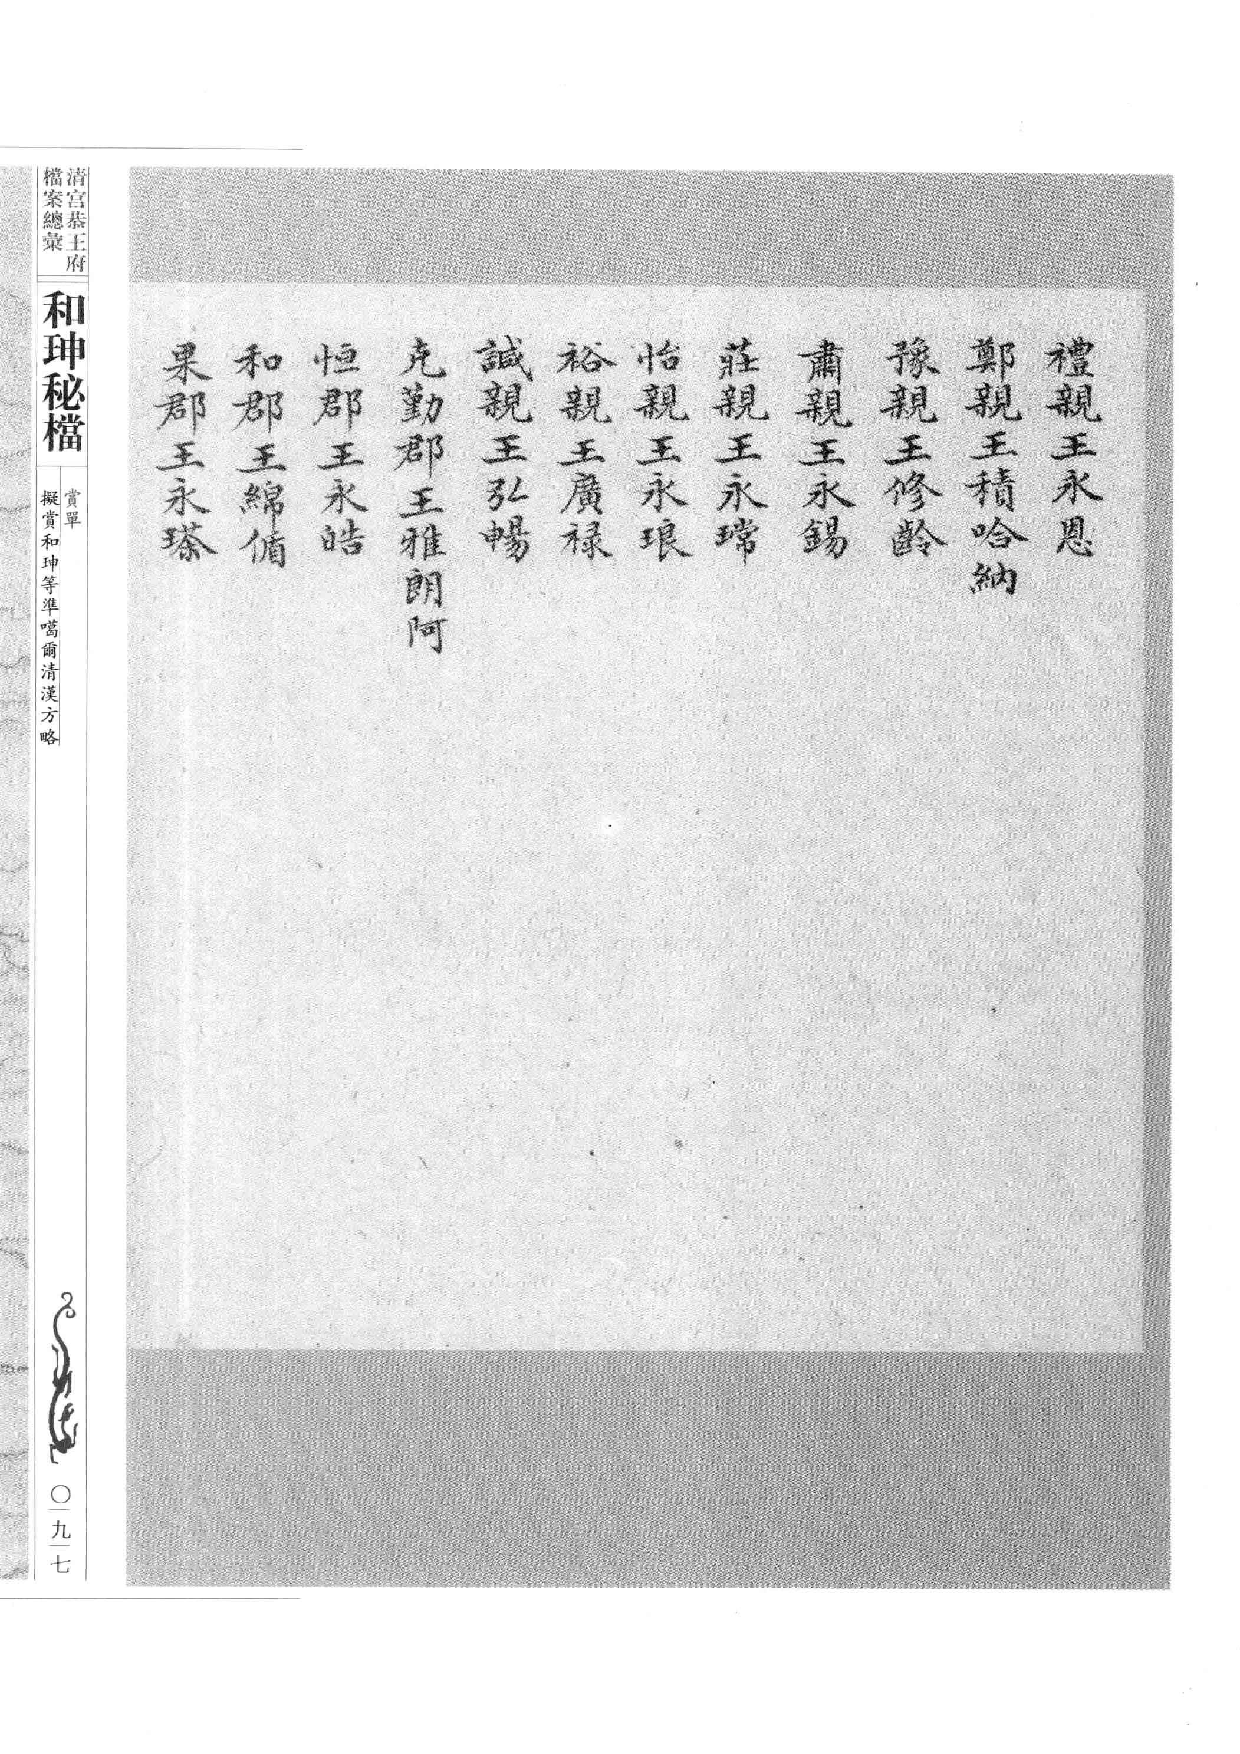 禮親王永恩
鄭親王積哈納
豫親王修齡
肅親王永錫
莊親王永瑺
怡親王永琅
裕親王廣禄
諴親王弘暢
克勤郡王雅朗阿
恒郡王永皓
和郡王綿循
果郡王永瑹
清宫恭王府
檔案總彙
和珅秘檔
賞單
擬賞和珅等準噶爾清漢方略
〇九七